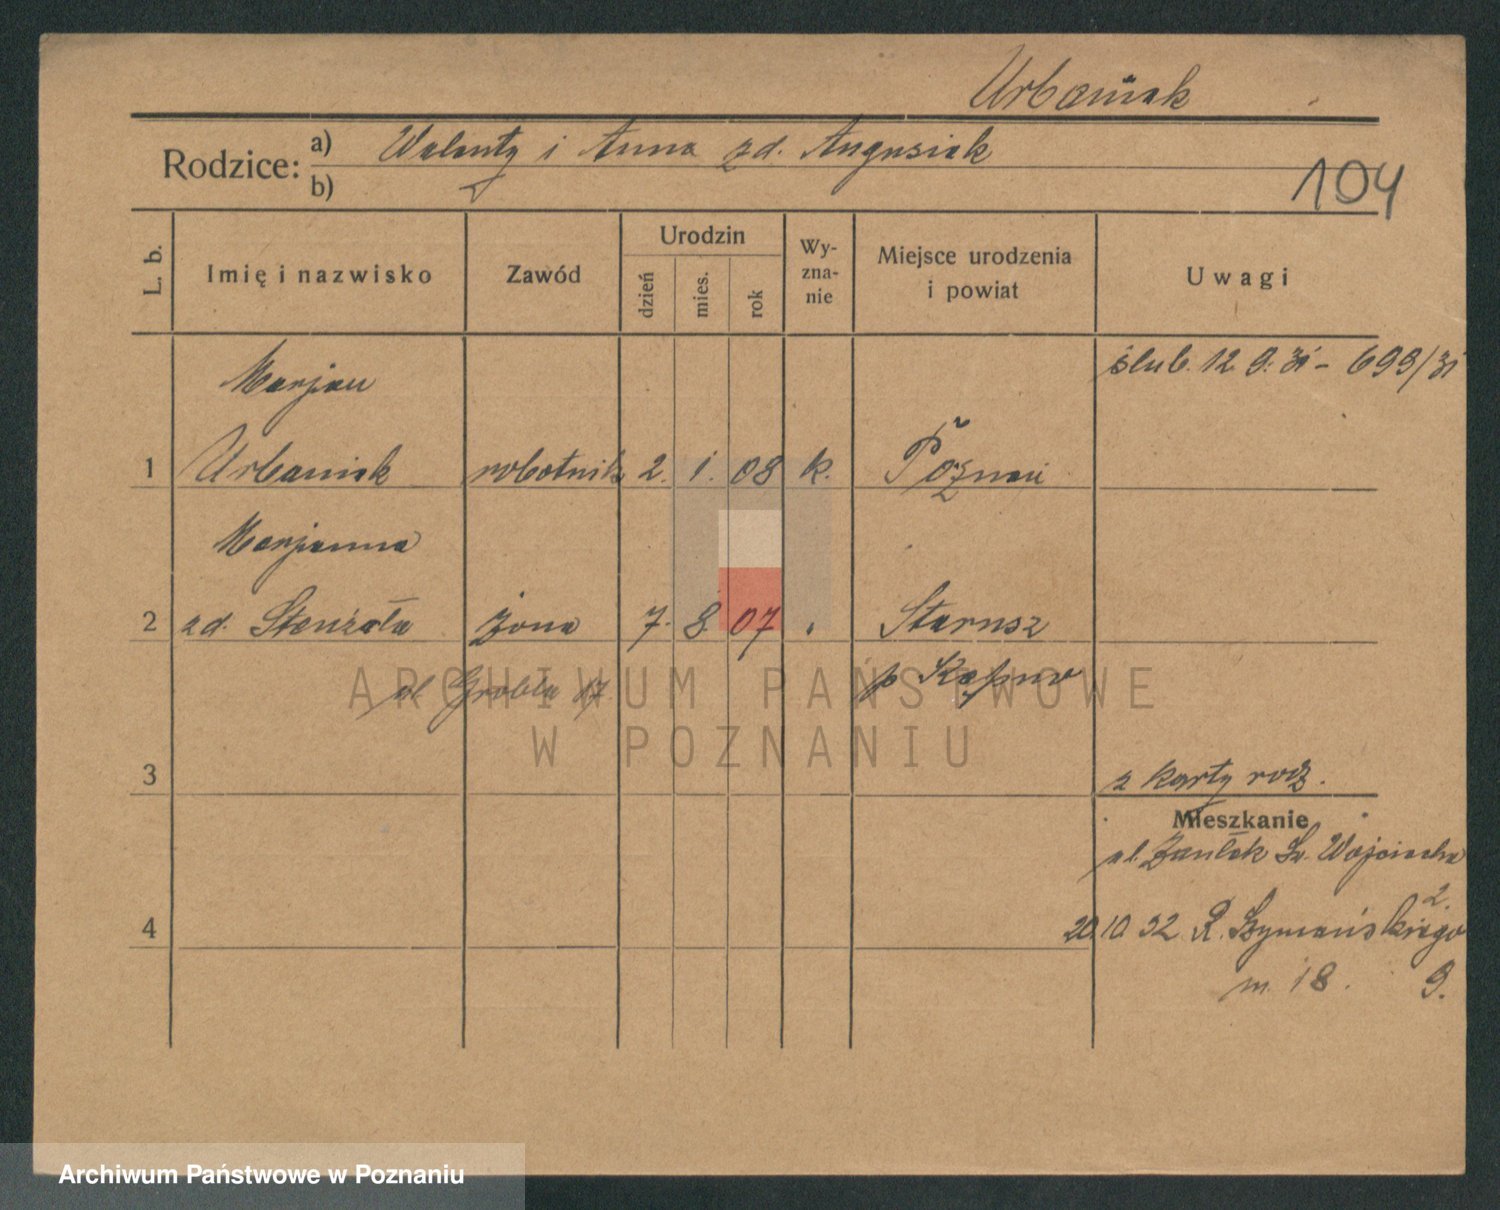 Urbaniak
Rodzice: a) Walenty i Anna zd. Augusiak
b)
104
L. b. Imię i nazwisko Zawód Urodzin dzień mies. rok Wyznanie Miejsce urodzenia i powiat Uwagi
ślub. 12 9. 31 - 699/31
Marjan
1 Urbaniak robotnik 2. 1. 08 k. Poznań
Marjanna
2 zd. żona 7. 8. 07 .
ul. Grobla 17.
3 z karty rodz.
Mieszkanie
ul. Zaułek Św. Wojciecha
2.
4 20.10 32 R. Szymańskiego
m. 18. 9.
ARCHIWUM PAŃSTWOWE
W POZNANIU
Archiwum Państwowe w Poznaniu